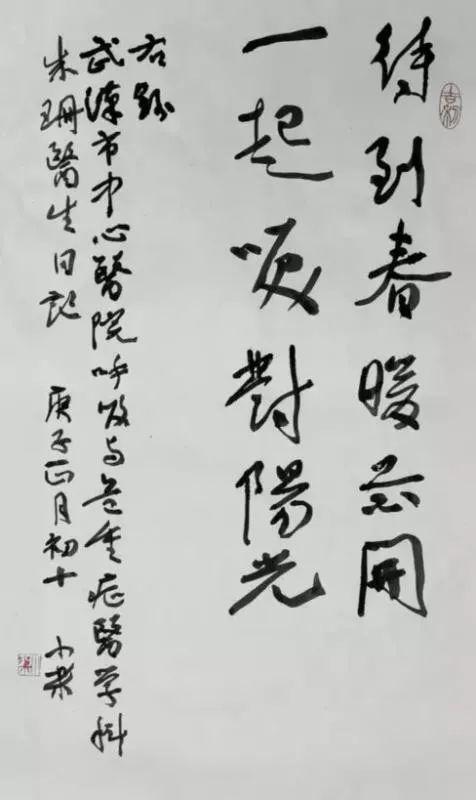 待到春暖花開
一起咲對陽光
右錄
武漢市中心醫院呼吸与危重症醫学科
朱珊醫生日記 庚子正月初十 小